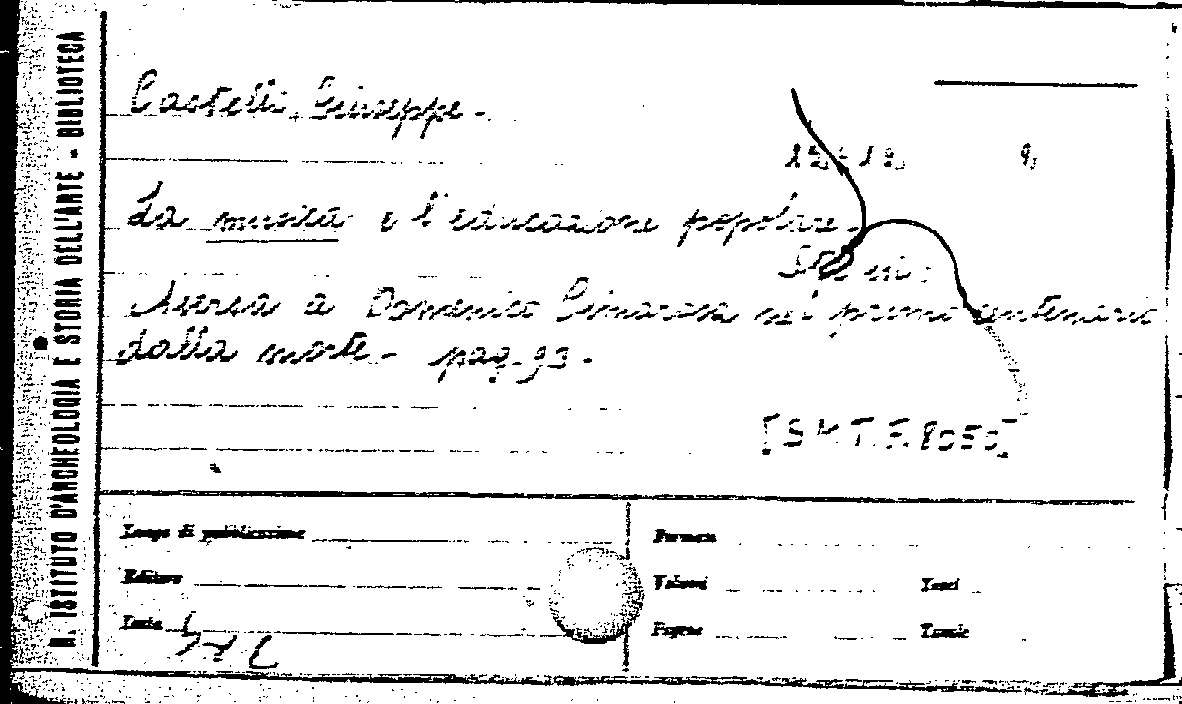 R. ISTITUTO D'ARCHEOLOGIA E STORIA DELL'ARTE - BIBLIOTECA
Castelli Giuseppe.
La musica e l'educazione popolare.
Sta in:
Aversa a Domenico Cimarosa nel primo centenario
dalla morte - pag. 93.
[S.M.T.F. 8050]
Luogo di pubblicazione
Formato
Editore
Volumi
Testi
Data
Pagine
Tavole